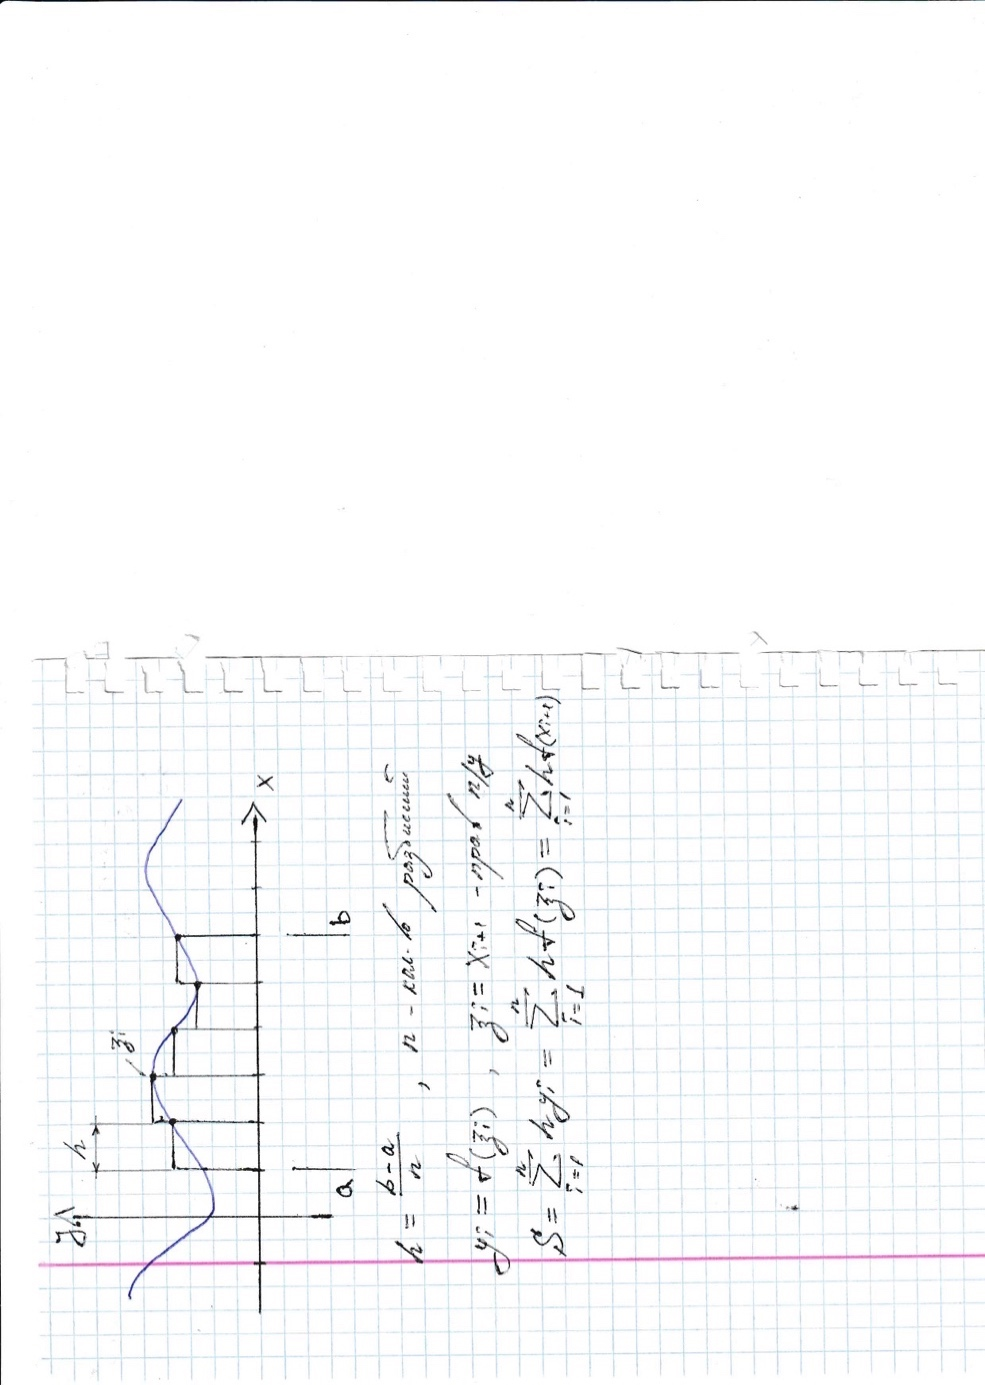 y
h
ξi
x
a
b
h = (b-a)/n , n - кол-во разбиений
yi = f(ξi) , ξi = xi+1 - прав п/у
S = Σ_{i=1}^{n} h yi = Σ_{i=1}^{n} h f(ξi) = Σ_{i=1}^{n} h f(xi+1)